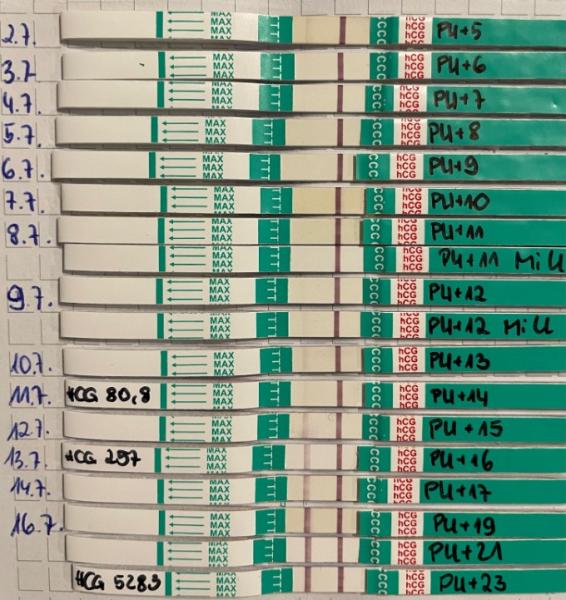 2.7. MAX MAX MAX hCG hCG PU+5
3.7 MAX MAX MAX hCG hCG hCG PU+6
4.7. MAX MAX MAX hCG hCG PU+7
5.7. MAX MAX MAX hCG hCG PU+8
6.7. MAX MAX MAX hCG hCG PU+9
7.7. MAX MAX MAX hCG hCG PU+10
8.7. MAX MAX MAX hCG hCG PU+11
MAX MAX MAX hCG hCG PU+11 Mi U
9.7. MAX MAX MAX hCG hCG PU+12
MAX MAX MAX hCG hCG hCG PU+12 Mi U
10.7. MAX MAX MAX hCG hCG hCG PU+13
11.7. HCG 80,8 MAX MAX MAX hCG hCG PU+14
12.7. MAX MAX MAX hCG hCG PU+15
13.7. HCG 257 MAX MAX MAX hCG hCG PU+16
14.7. MAX MAX MAX hCG hCG PU+17
16.7. MAX MAX MAX hCG hCG PU+19
MAX MAX MAX hCG hCG PU+21
HCG 5283 MAX MAX MAX hCG hCG PU+23